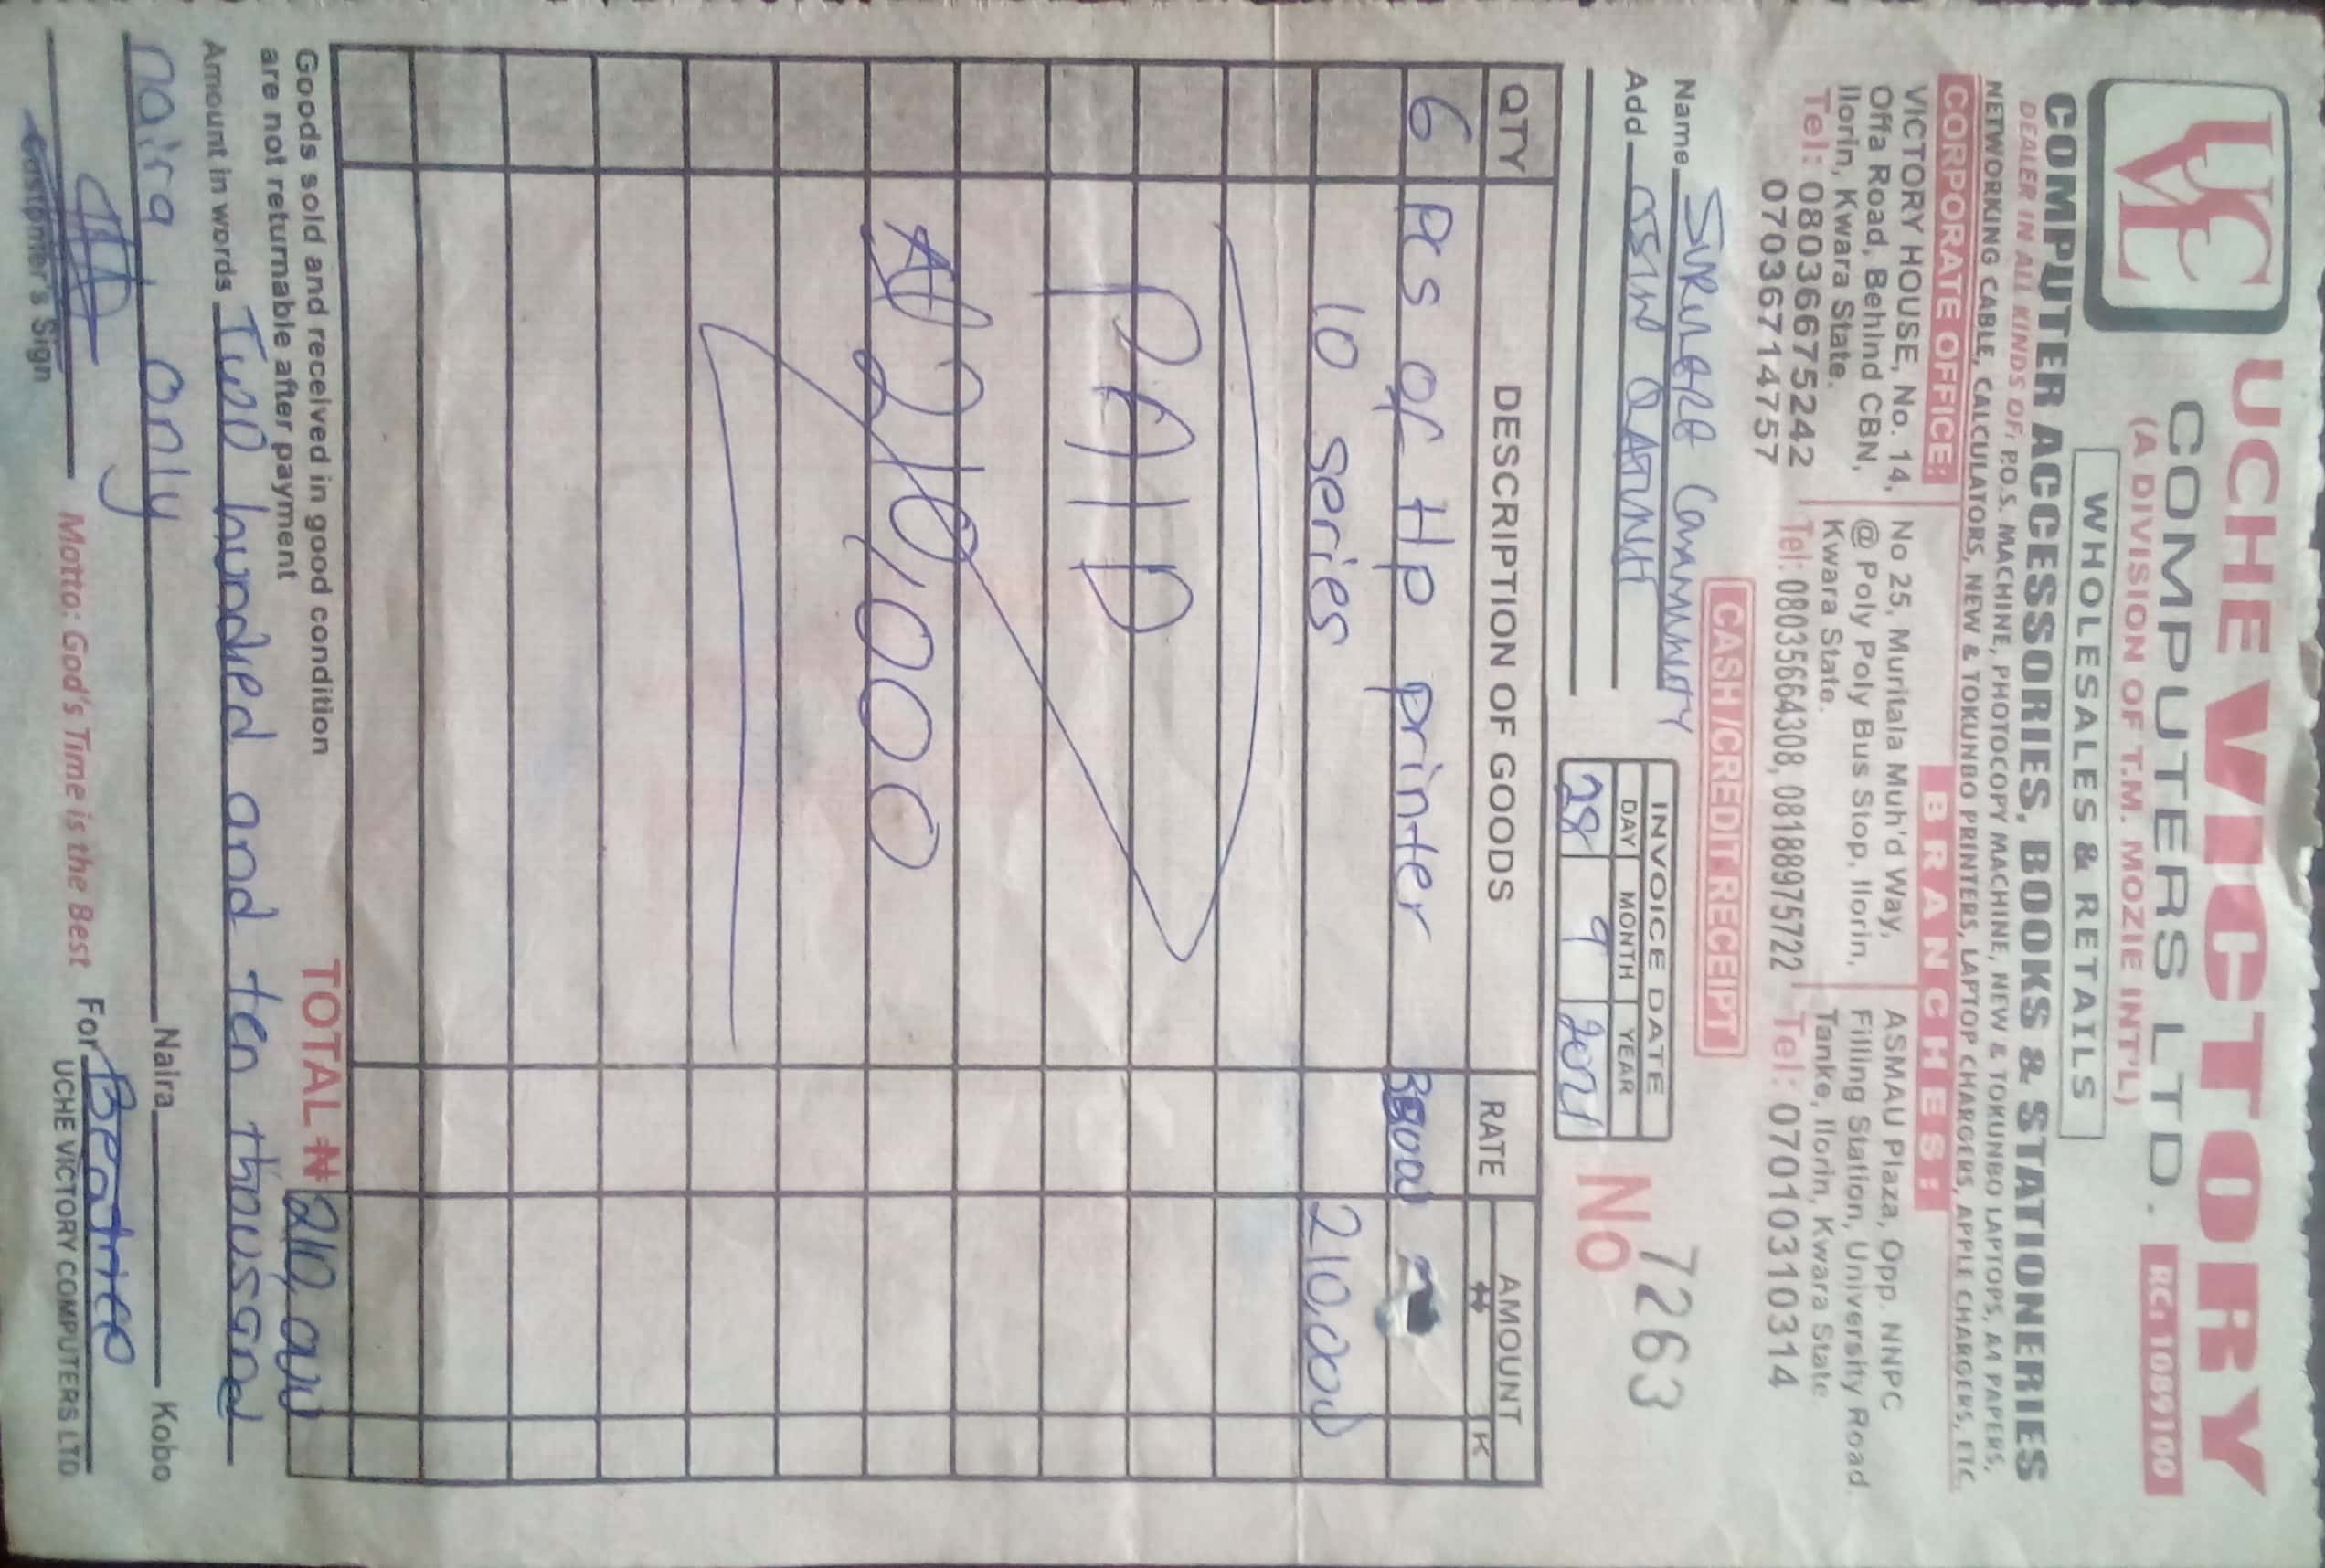 UCHE VICTORY
COMPUTERS LTD. RC: 1089100
(A DIVISION OF T.M. MOZIE INT'L)
WHOLESALES & RETAILS
COMPUTER ACCESSORIES, BOOKS & STATIONERIES
DEALER IN ALL KINDS OF; P.O.S. MACHINE, PHOTOCOPY MACHINE, NEW & TOKUNBO LAPTOPS, A4 PAPERS,
NETWORKING CABLE, CALCULATORS, NEW & TOKUNBO PRINTERS, LAPTOP CHARGERS, APPLE CHARGERS, ETC.
CORPORATE OFFICE:
VICTORY HOUSE, No. 14,
Offa Road, Behind CBN,
Ilorin, Kwara State.
Tel: 08036675242
07036714757
BRANCHES:
No 25, Muritala Muh'd Way,
@ Poly Poly Bus Stop, Ilorin,
Kwara State.
Tel: 08035664308, 08188975722
ASMAU Plaza, Opp. NNPC
Filling Station, University Road.
Tanke, Ilorin, Kwara State.
Tel: 07010310314
CASH/CREDIT RECEIPT
Name Community
Add OSIN
INVOICE DATE
DAY MONTH YEAR
28 9 2021
No 7263
QTY DESCRIPTION OF GOODS RATE AMOUNT
₦ K
6 Pcs of Hp printer
10 series 210,000
PAID
₦ 210,000
Goods sold and received in good condition
are not returnable after payment
TOTAL ₦ 210,000
Amount in words Two hundred and ten thousand
naira only Naira Kobo
Customer's Sign
Motto: God's Time is the Best
For Beatrice
UCHE VICTORY COMPUTERS LTD